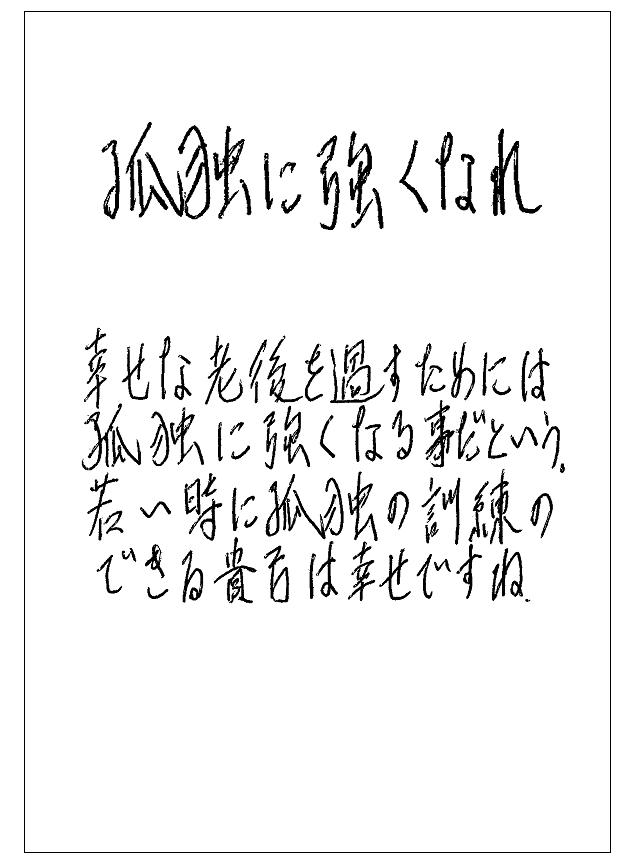 孤独に強くなれ
幸せな老後を過すためには
孤独に強くなる事だという。
若い時に孤独の訓練の
できる貴方は幸せですね.